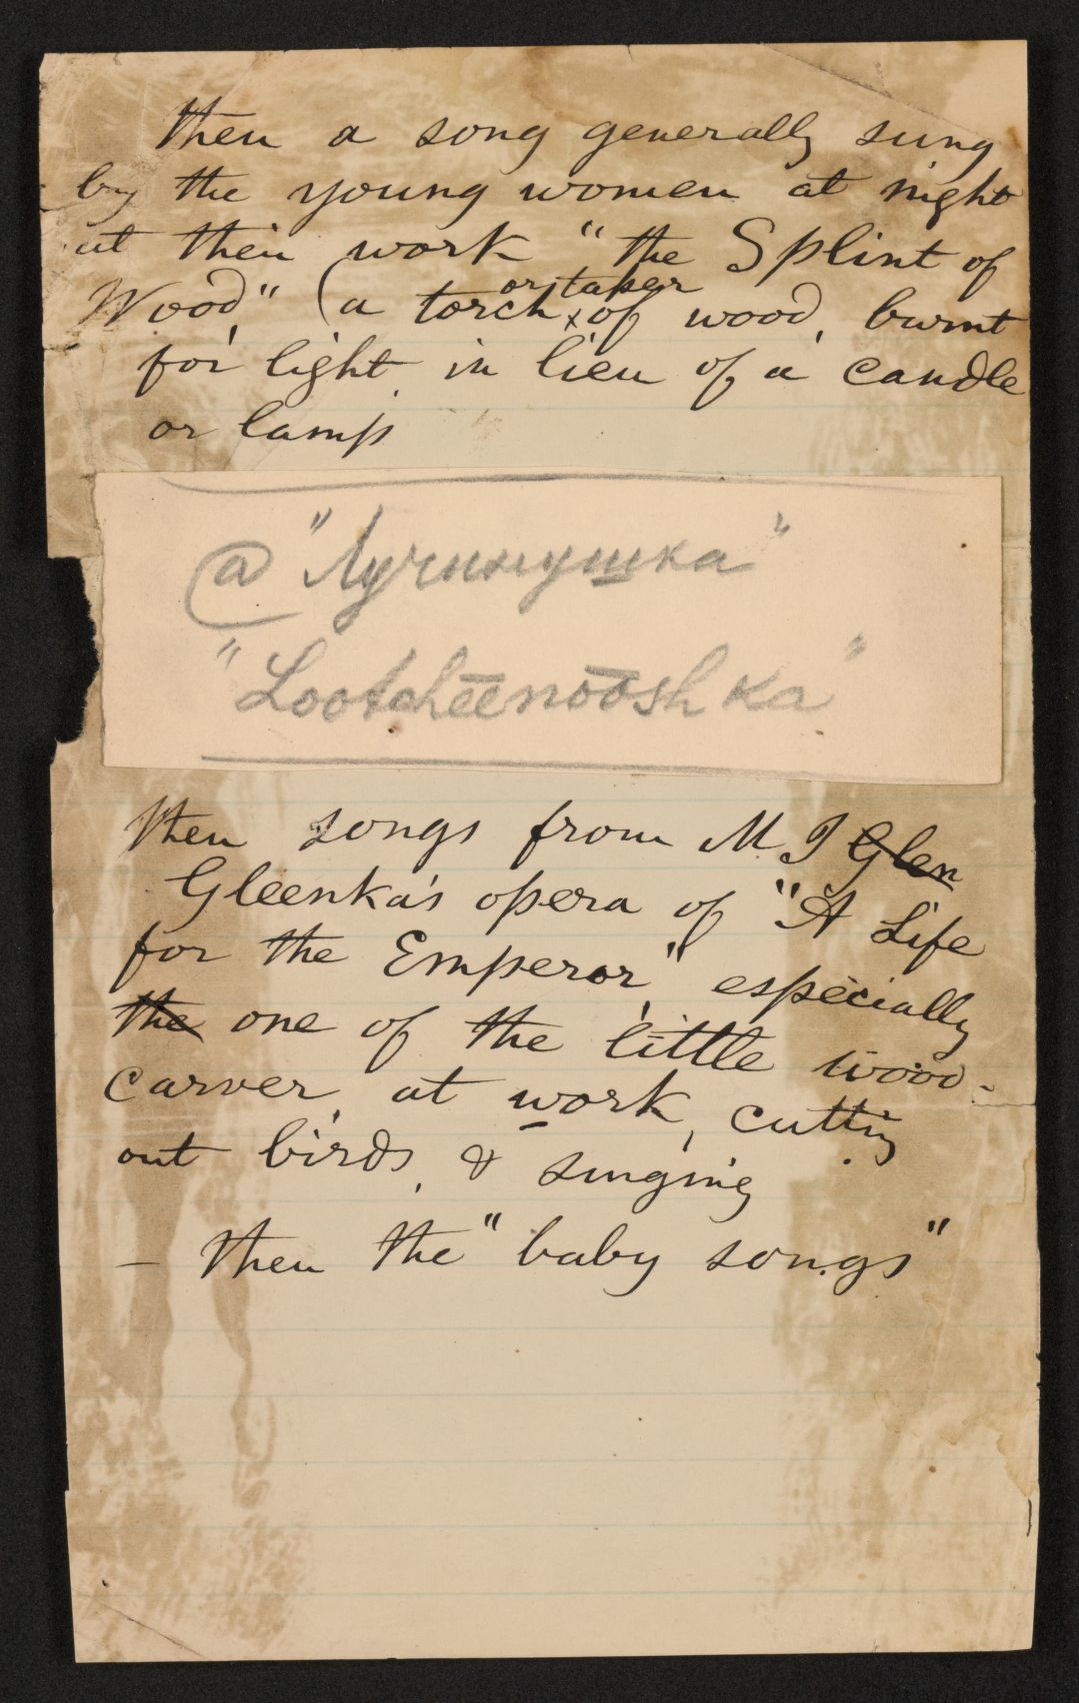 then a song generally sung
by the young women at night
at their work "the Splint of
Wood," (a torch or taper of wood, burnt
for light, in lieu of a candle
or lamp
@ "Лучинушка"
"Lootcheenooshka"
then songs from M. I Glen
Gleenka's opera of "A Life
for the Emperor," especially
the one of the little wood-
carver at work, cutting
out birds, & singing
- then the "baby songs"